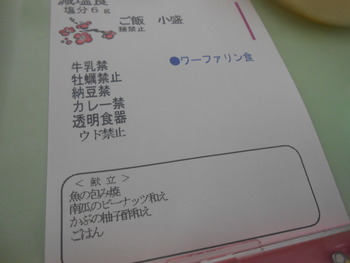 減塩食
塩分6g
ご飯 小盛
麺禁止
●ワーファリン食
牛乳禁
牡蠣禁止
納豆禁
カレー禁
透明食器
ウド禁止
<献立>
魚の包み焼
南瓜のピーナッツ和え
かぶの柚子酢和え
ごはん